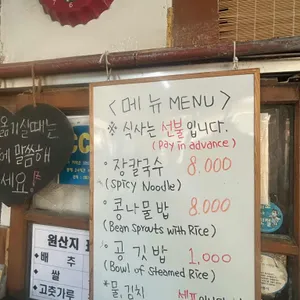 <메뉴 MENU>
※ 식사는 선불입니다.
(Pay in advance)
• 장칼국수 8.000
(Spicy Noodle)
• 콩나물밥 8.000
(Bean Sprouts with Rice)
• 공깃밥 1,000
(Bowl of Steamed Rice)
*물,김치
옮기실때는
말씀해
세요!
원산지
• 배추
• 쌀
• 고춧가루